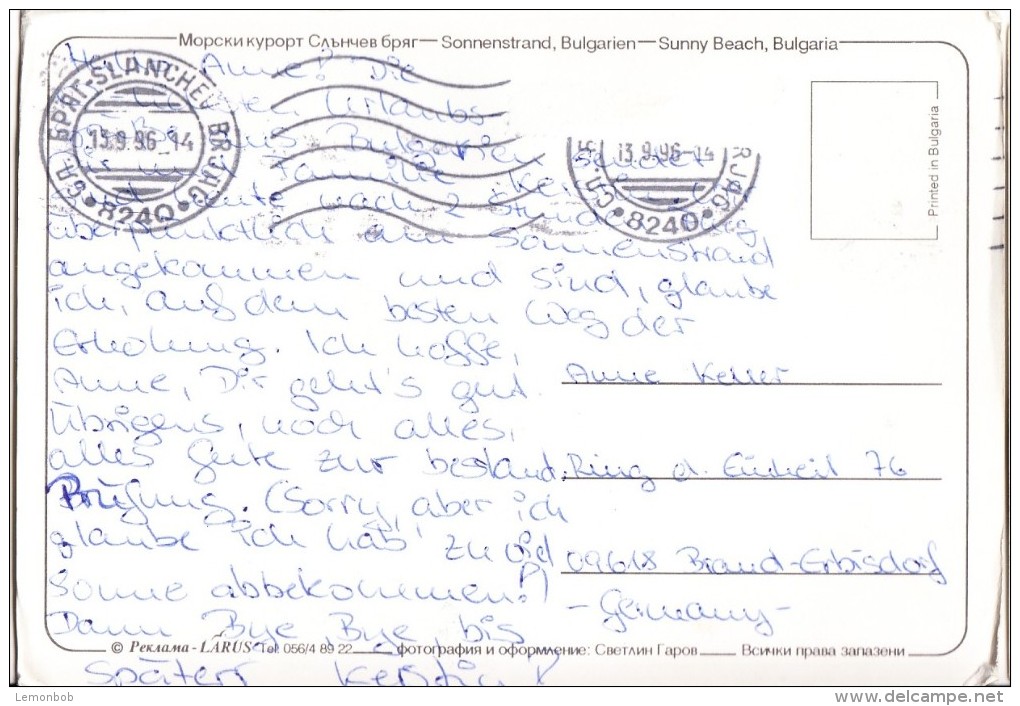 Морски курорт Слънчев бряг — Sonnenstrand, Bulgarien — Sunny Beach, Bulgaria
Hallo Anne! Die
Urlaubs-
aus Bulgarien sendet
Dir Familie
heute nach 2 Stunden Flug
überpünktlich am Sonnenstrand
angekommen und sind, glaube
ich, auf dem besten Weg der
Erholung. Ich hoffe,
Anne, Dir geht's gut.
Übrigens, noch alles,
alles Gute zur bestand.
Prüfung. (Sorry, aber ich
glaube ich hab' zu viel
Sonne abbekommen!)
Dann Bye, Bye bis
später! Kerstin
СЛ. БРЯГ-SLANCHEV BRJAG
13.9.96-14
8240
13.9.96-14
8240
Printed in Bulgaria
Anne Keller
Ring d. Einheit 76
09618 Brand-Erbisdorf
-Germany-
© Реклама - LARUS Tel. 056/4 89 22 — фотография и оформление: Светлин Гаров — Всички права запазени
Lemonbob
www.delcampe.net